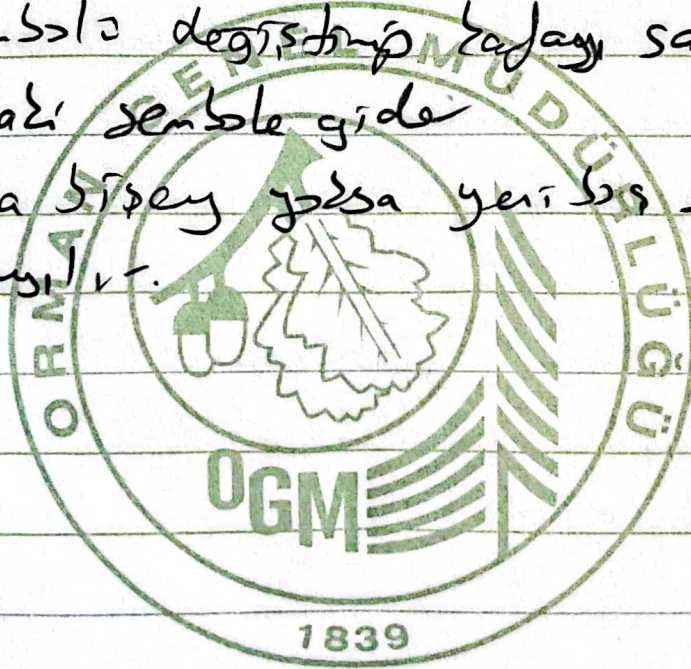 değiştirip kafayı
sembole gider
bişey yoksa yeri boş
ORMAN GENEL MÜDÜRLÜĞÜ
OGM
1839